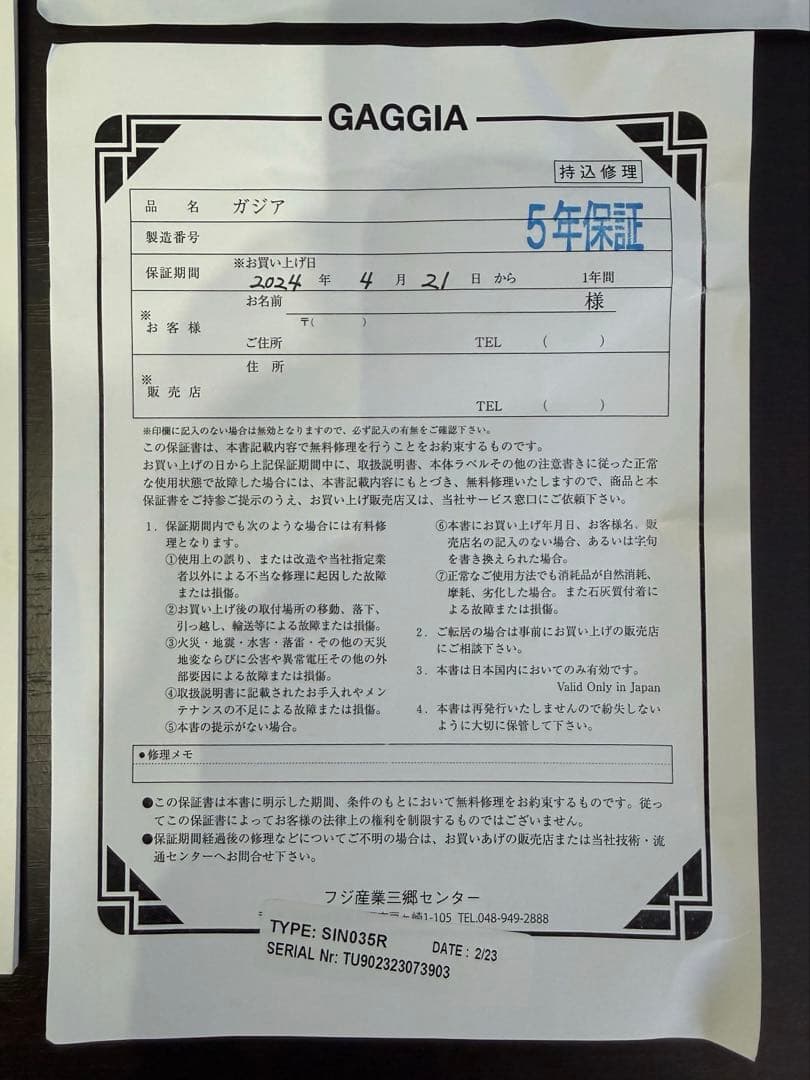 GAGGIA
持込修理
品 名 ガジア
5年保証
製造番号
保証期間 ※お買い上げ日 2024 年 4 月 21 日 から 1年間
※お客様 お名前 様
〒( )
ご住所 TEL ( )
※販売店 住 所
TEL ( )
※印欄に記入のない場合は無効となりますので、必ず記入の有無をご確認下さい。
この保証書は、本書記載内容で無料修理を行うことをお約束するものです。
お買い上げの日から上記保証期間中に、取扱説明書、本体ラベルその他の注意書きに従った正常
な使用状態で故障した場合には、本書記載内容にもとづき、無料修理いたしますので、商品と本
保証書をご持参ご提示のうえ、お買い上げ販売店又は、当社サービス窓口にご依頼下さい。
1. 保証期間内でも次のような場合には有料修
理となります。
①使用上の誤り、または改造や当社指定業
者以外による不当な修理に起因した故障
または損傷。
②お買い上げ後の取付場所の移動、落下、
引っ越し、輸送等による故障または損傷。
③火災・地震・水害・落雷・その他の天災
地変ならびに公害や異常電圧その他の外
部要因による故障または損傷。
④取扱説明書に記載されたお手入れやメン
テナンスの不足による故障または損傷。
⑤本書の提示がない場合。
⑥本書にお買い上げ年月日、お客様名、販
売店名の記入のない場合、あるいは字句
を書き換えられた場合。
⑦正常なご使用方法でも消耗品が自然消耗、
摩耗、劣化した場合。また石灰質付着に
よる故障または損傷。
2. ご転居の場合は事前にお買い上げの販売店
にご相談下さい。
3. 本書は日本国内においてのみ有効です。
Valid Only in Japan
4. 本書は再発行いたしませんので紛失しない
ように大切に保管して下さい。
●修理メモ
●この保証書は本書に明示した期間、条件のもとにおいて無料修理をお約束するものです。従っ
てこの保証書によってお客様の法律上の権利を制限するものではございません。
●保証期間経過後の修理などについてご不明の場合は、お買いあげの販売店または当社技術・流
通センターへお問合せ下さい。
フジ産業三郷センター
1-105 TEL.048-949-2888
TYPE: SIN035R DATE : 2/23
SERIAL Nr: TU902323073903